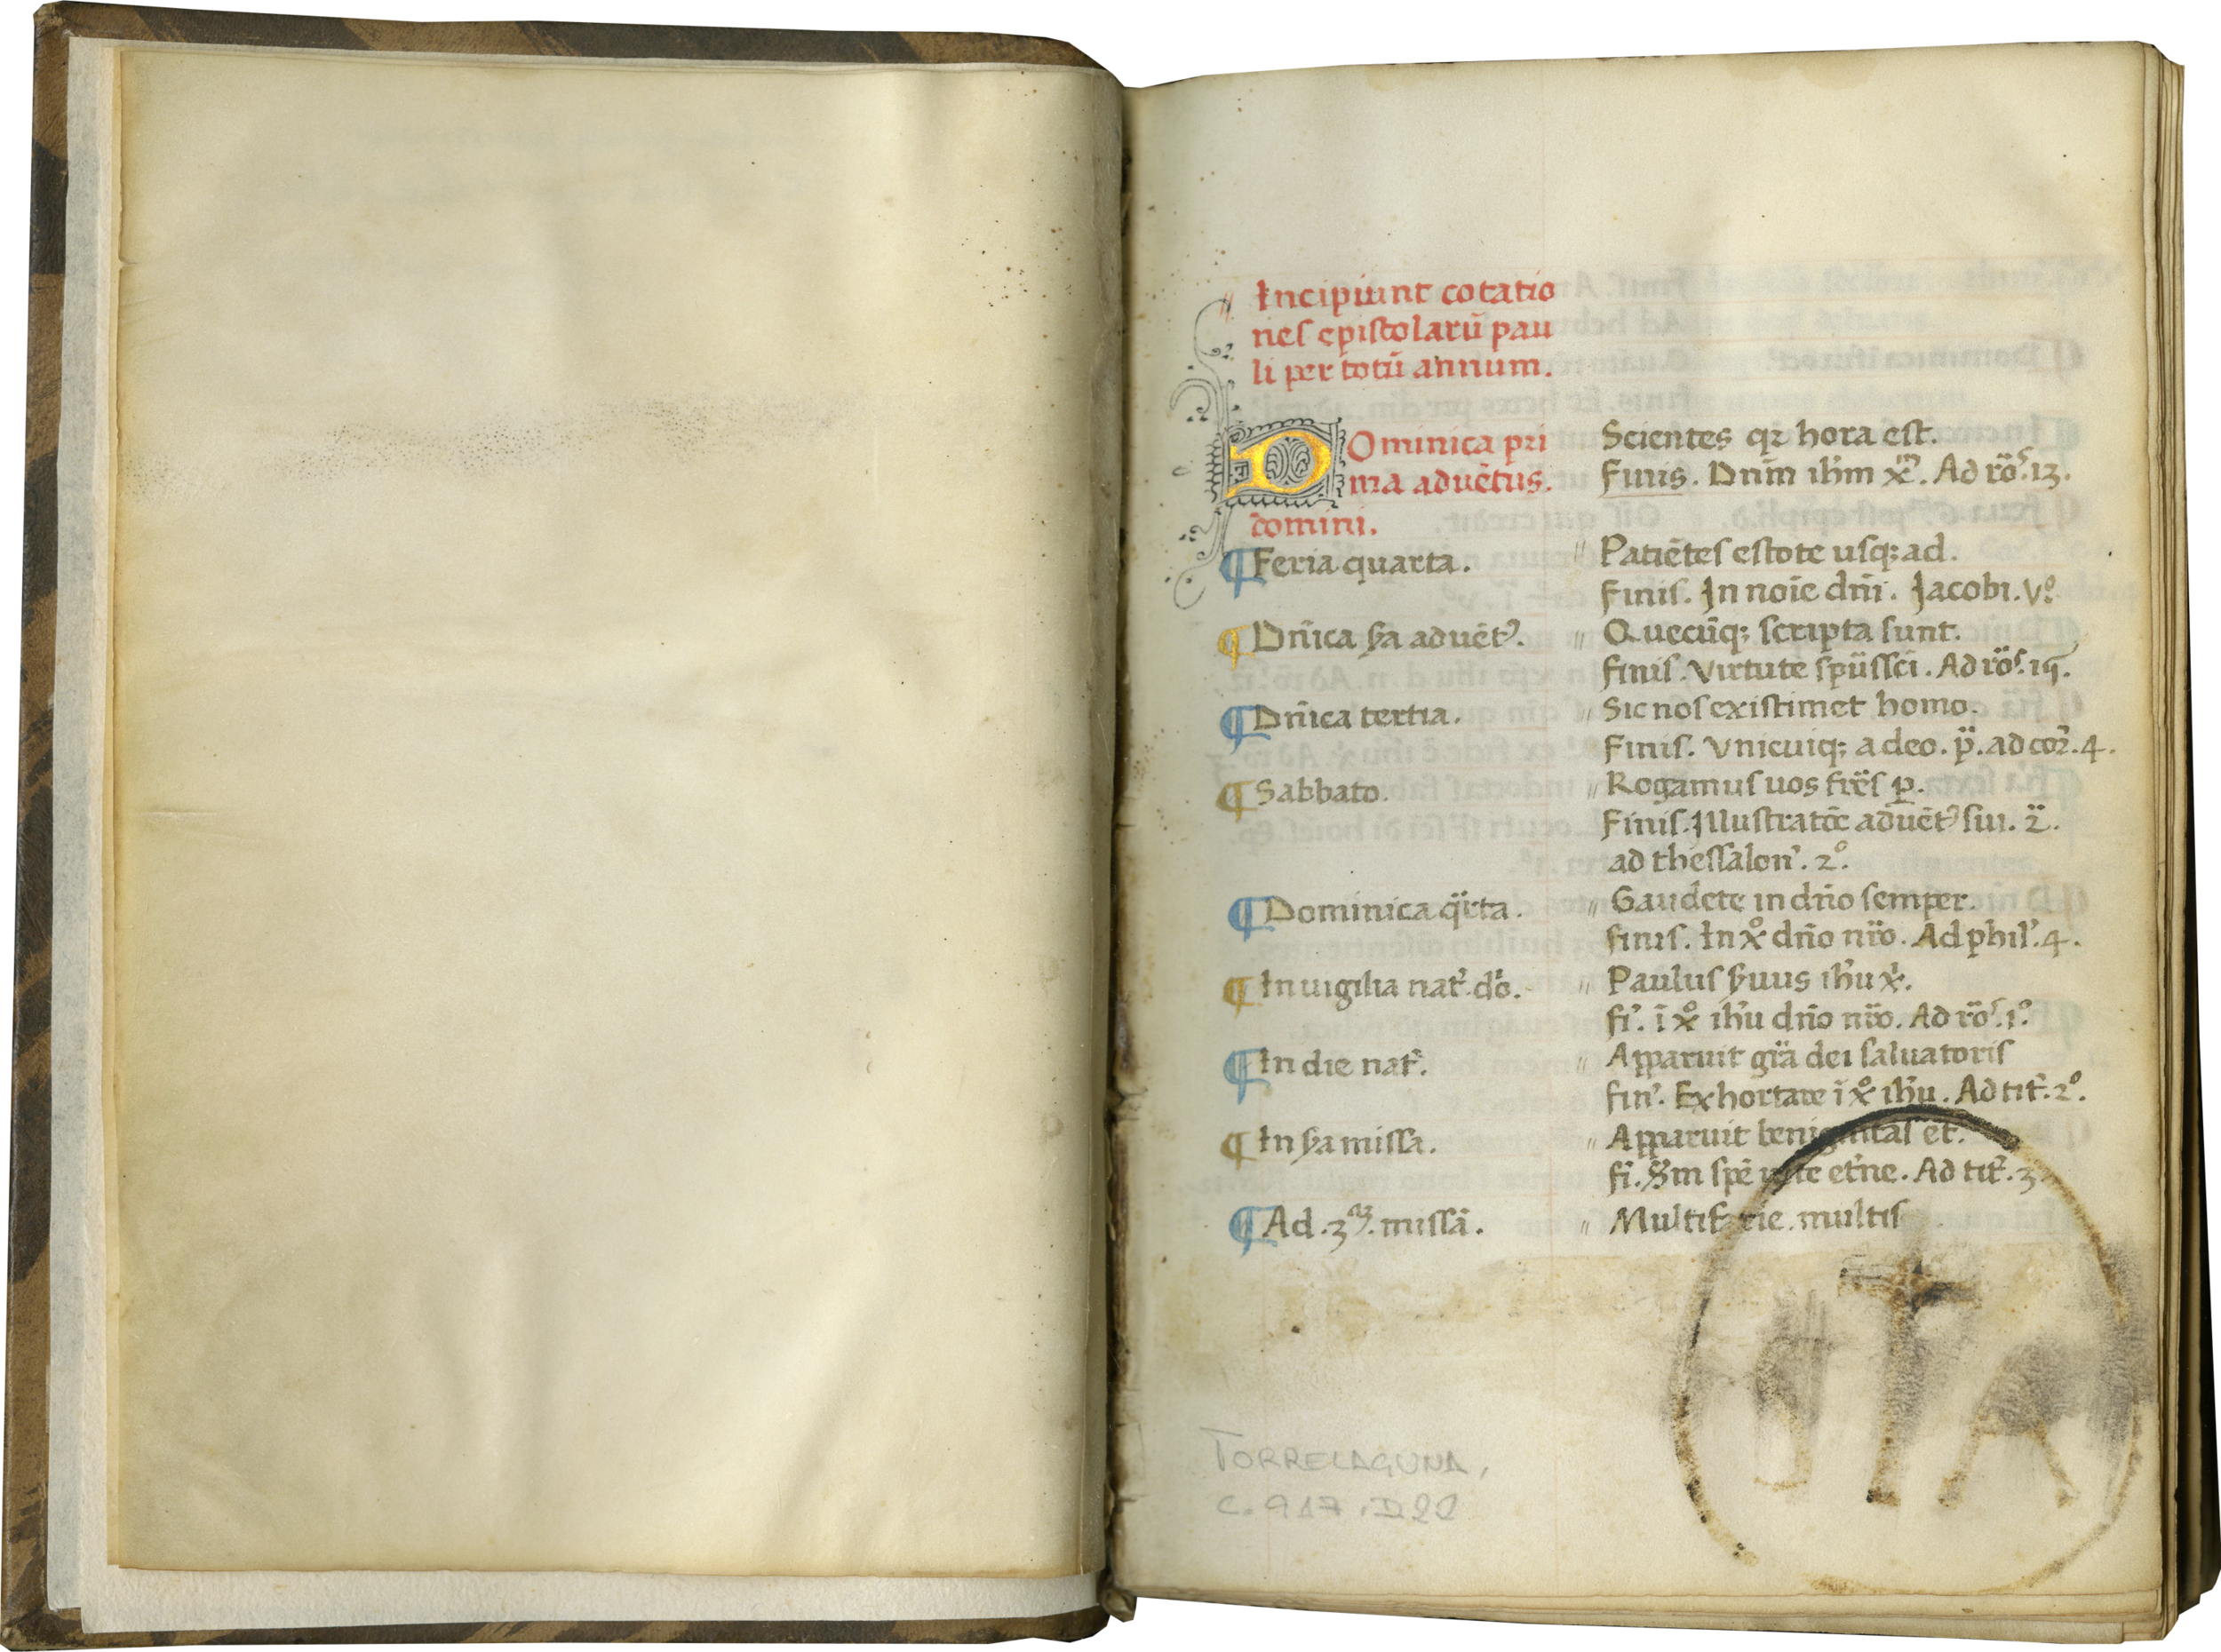 Incipiunt cotatio
nes epistolarū pau
li per totū annum.
DOminica pri
ma aduētus.
domini.
Scientes qꝛ hora est.
Finis. Dnm̄ ihm̄ xm̄. Ad ro͞s.13.
¶ Feria quarta.
〃 Patiētes estote usq; ad.
Finis. In noīe dn̄i. Jacobi. vº.
¶ Dn̄ica ẜa aduēt⁹.
〃 Quecūq; scripta sunt.
finis. Virtute sp̄ūssc̄i. Ad ro͞s.
¶ Dn̄ica tertia.
〃 Sic nos existimet homo.
Finis. Vnicuiq; a deo. p̈. ad cor̄. 4.
¶ Sabbato.
〃 Rogamus uos fr̄es p̱.
Finis. Illustratōe aduēt⁹ sui. 2̈.
ad thessalon̉. 2º.
¶ Dominica q̈rta.
〃 Gaudete in dn̄o semper.
finis. In xº dn̄o nr̄o. Ad phil̉. 4.
¶ In uigilia nat̉. do̍.
〃 Paulus ẜuus ih̄u xⁱ.
fỉ. ī xº ih̄u dn̄o nr̄o. Ad ro͞s. 1º.
¶ In die nat̉.
〃 Apparuit gr̄a dei saluatoris
fin̉. Exhortare ī xº ih̄u. Ad tit̉. 2º.
¶ In ẜa missa.
〃 Apparuit benignitas et.
fỉ. Sm̄ spē uite et̉ne. Ad tit̉. 3.
¶ Ad. 3ᵃᵐ. missā.
〃 Multifarie. multis
TORRELAGUNA,
C. 917, D22